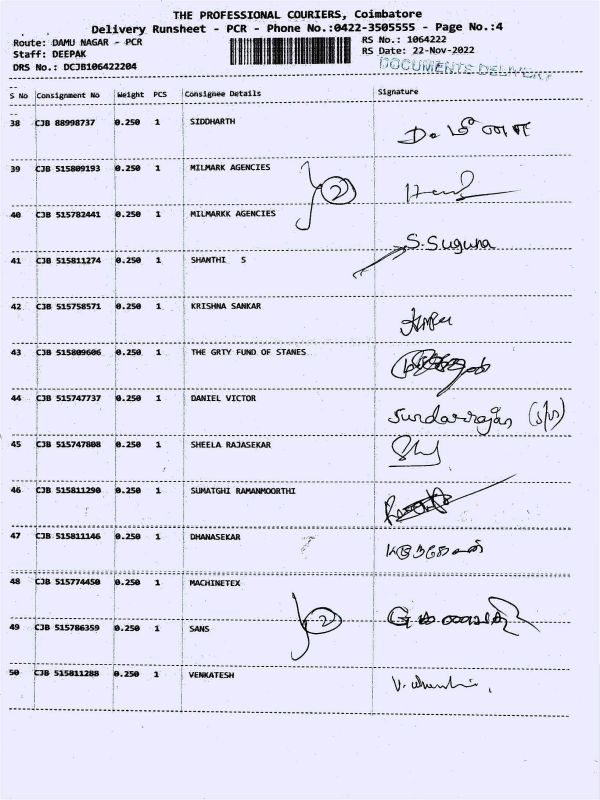 THE PROFESSIONAL COURIERS, Coimbatore
Delivery Runsheet - PCR - Phone No.:0422-3505555 - Page No.:4
Route: DAMU NAGAR - PCR
RS No.: 1064222
Staff: DEEPAK
RS Date: 22-Nov-2022
DRS No.: DCJB106422204
DOCUMENTS DELIVERY
S No Consignment No Weight PCS Consignee Details Signature
38 CJB 88998737 0.250 1 SIDDHARTH
39 CJB 515809193 0.250 1 MILMARK AGENCIES 2
40 CJB 515782441 0.250 1 MILMARKK AGENCIES
S. Suguna
41 CJB 515811274 0.250 1 SHANTHI S
42 CJB 515758571 0.250 1 KRISHNA SANKAR
43 CJB 515809606 0.250 1 THE GRTY FUND OF STANES
44 CJB 515747737 0.250 1 DANIEL VICTOR
Sundarrajan
45 CJB 515747808 0.250 1 SHEELA RAJASEKAR
46 CJB 515811290 0.250 1 SUMATGHI RAMANMOORTHI
47 CJB 515811146 0.250 1 DHANASEKAR
48 CJB 515774450 0.250 1 MACHINETEX
2
49 CJB 515786359 0.250 1 SANS
50 CJB 515811288 0.250 1 VENKATESH